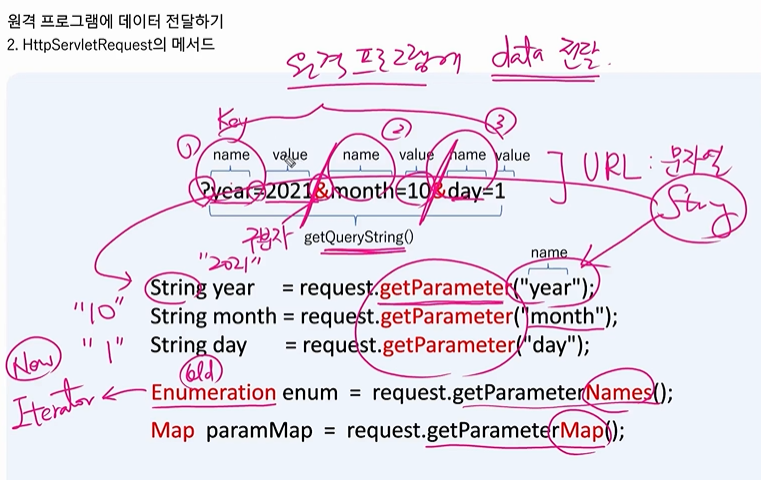 원격 프로그램에 데이터 전달하기
2. HttpServletRequest의 메서드
원격 프로그램에 data 전달.
Key
① ② ③
name value name value name value
?year=2021&month=10&day=1
URL : 문자열
String
구분자
getQueryString()
"2021"
name
String year = request.getParameter("year");
"10"
String month = request.getParameter("month");
"1"
String day = request.getParameter("day");
New
old
Iterator
Enumeration enum = request.getParameterNames();
Map paramMap = request.getParameterMap();